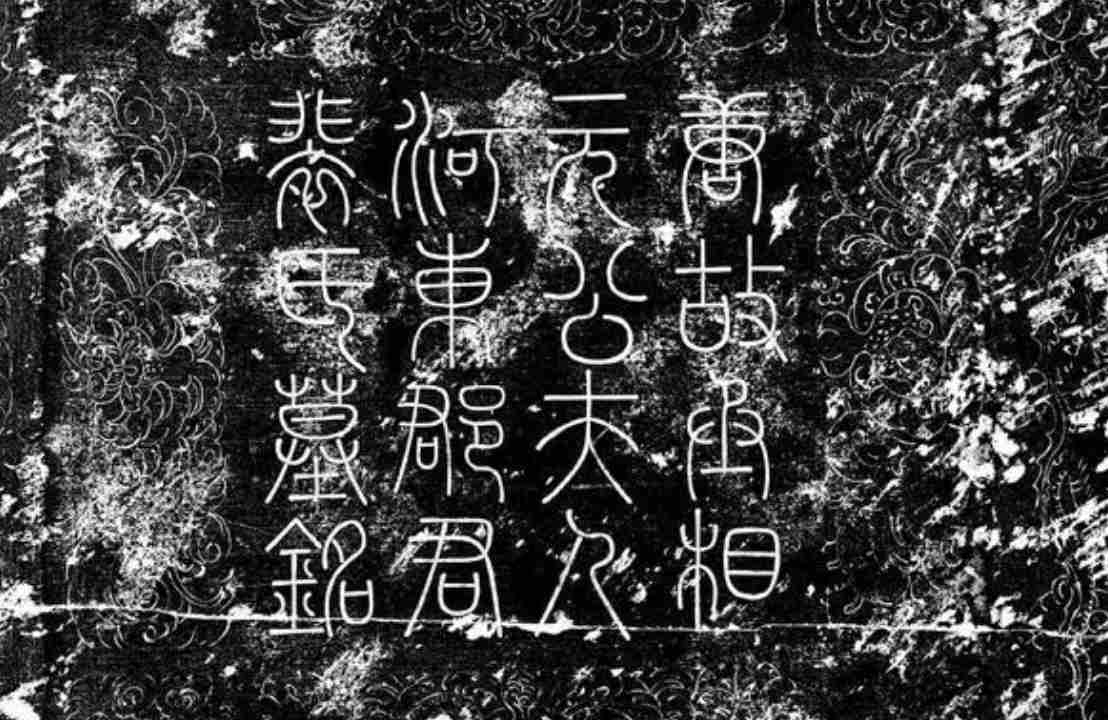 唐故丞相
元公夫人
河東郡君
裴氏墓銘